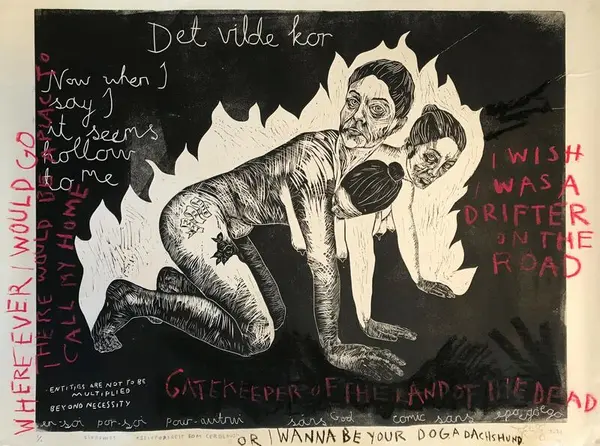 Det vilde kor
Now when I
say I
it seems
hollow
to me
WHERE EVER I WOULD GO
THERE WOULD BE A PLAC TO
CALL MY HOME
I WISH
I WAS A
DRIFTER
ON THE
ROAD
GATEKEEPER OF THE LAND OF THE DEAD
-ENTITIES ARE NOT TO BE
MULTIPLIED
BEYOND NECESSITY
en-soi por-soi pour-autrui sans God comic sans
OR I WANNA BE YOUR DOG A DACHSHUND
1/1